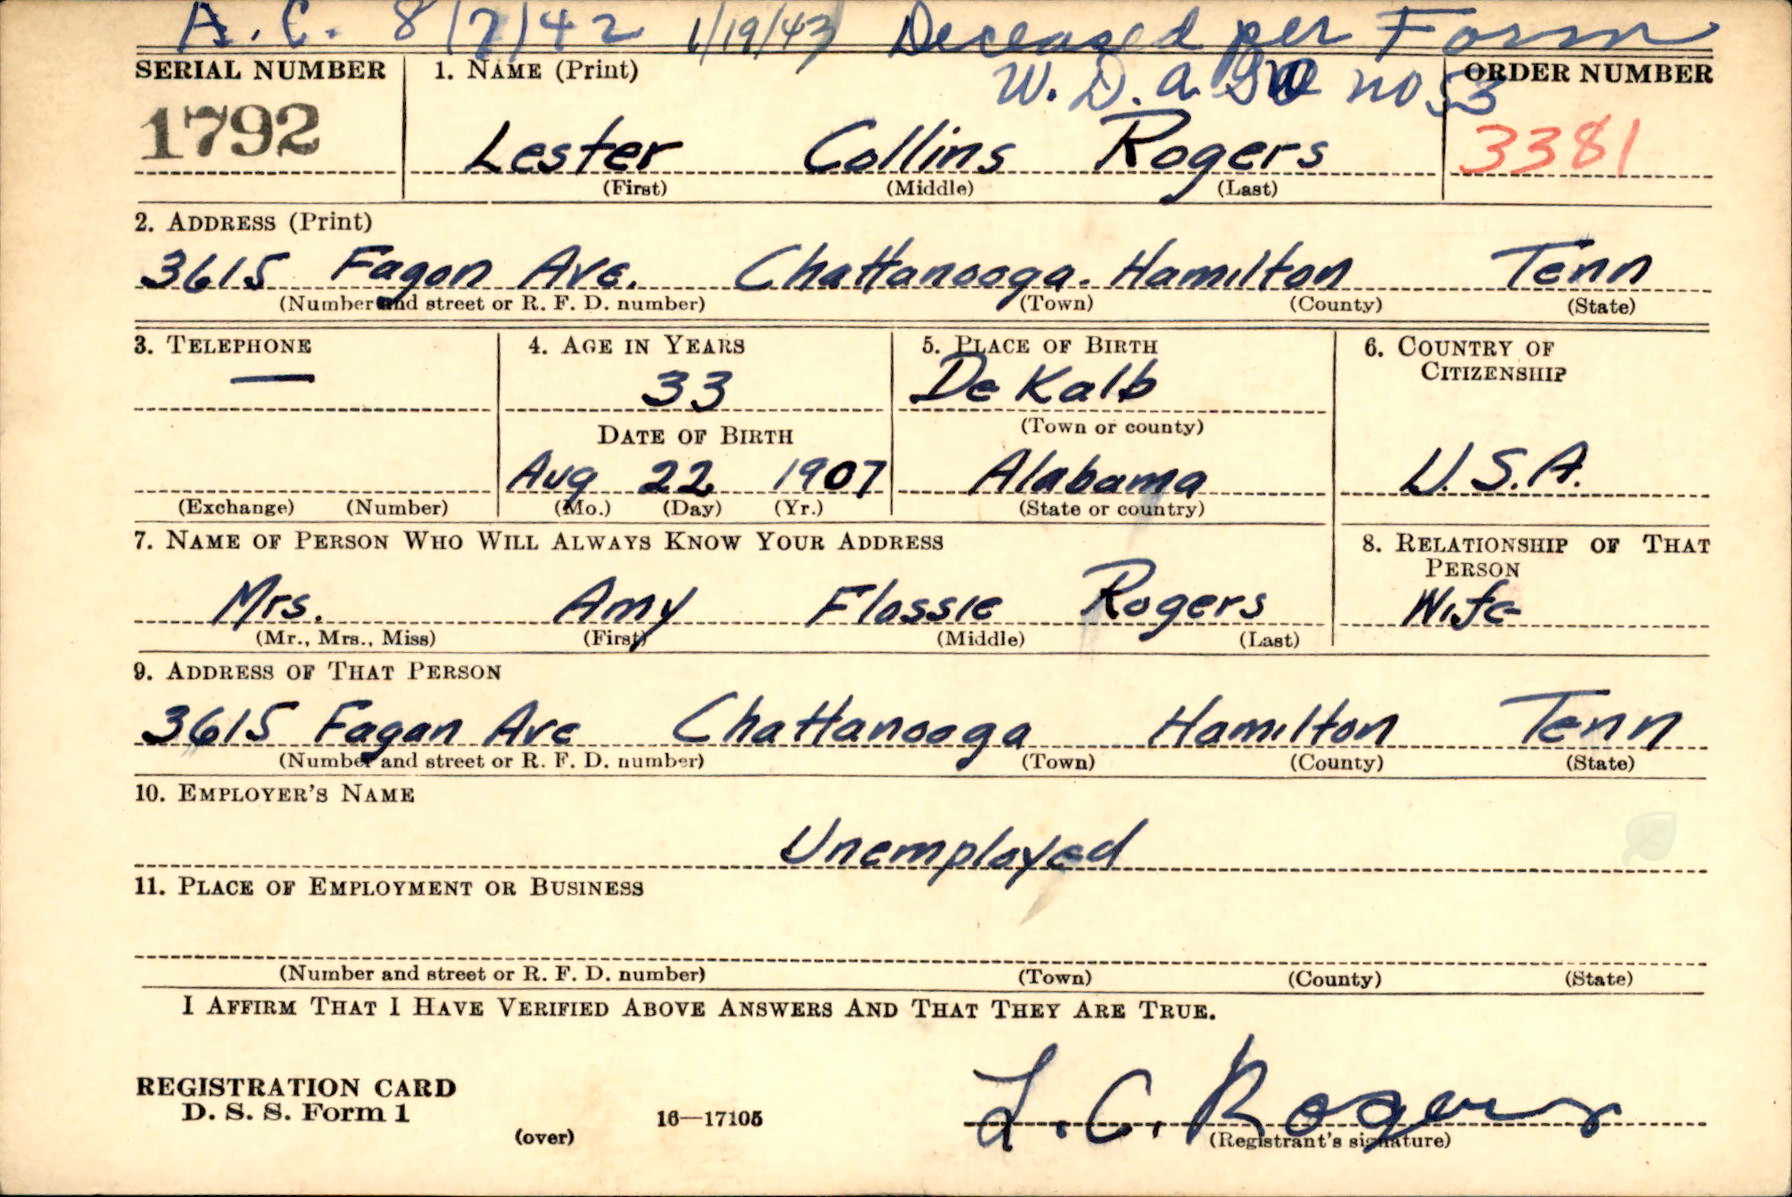 A. C. 8/7/42 1/19/43 Deceased per Form
W. D. a. GO no 53
SERIAL NUMBER 1. NAME (Print) ORDER NUMBER
1792 Lester Collins Rogers 3381
(First) (Middle) (Last)
2. ADDRESS (Print)
3615 Fagan Ave. Chattanooga. Hamilton Tenn
(Number and street or R. F. D. number) (Town) (County) (State)
3. TELEPHONE 4. AGE IN YEARS 5. PLACE OF BIRTH 6. COUNTRY OF CITIZENSHIP
— 33 De Kalb
(Town or county)
DATE OF BIRTH
Aug 22 1907 Alabama U.S.A.
(Exchange) (Number) (Mo.) (Day) (Yr.) (State or country)
7. NAME OF PERSON WHO WILL ALWAYS KNOW YOUR ADDRESS 8. RELATIONSHIP OF THAT PERSON
Mrs. Amy Flossie Rogers Wife
(Mr., Mrs., Miss) (First) (Middle) (Last)
9. ADDRESS OF THAT PERSON
3615 Fagan Ave Chattanooga Hamilton Tenn
(Number and street or R. F. D. number) (Town) (County) (State)
10. EMPLOYER'S NAME
Unemployed
11. PLACE OF EMPLOYMENT OR BUSINESS
(Number and street or R. F. D. number) (Town) (County) (State)
I AFFIRM THAT I HAVE VERIFIED ABOVE ANSWERS AND THAT THEY ARE TRUE.
REGISTRATION CARD
D. S. S. Form 1
(over) 16—17105
L. C. Rogers
(Registrant's signature)